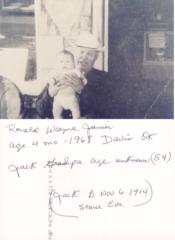 Ronald Wayne Junior
age 4 mo - 1968 Davis Ok
Jack Grandpa age unknown (54)
(Jack B Nov 6 1914)